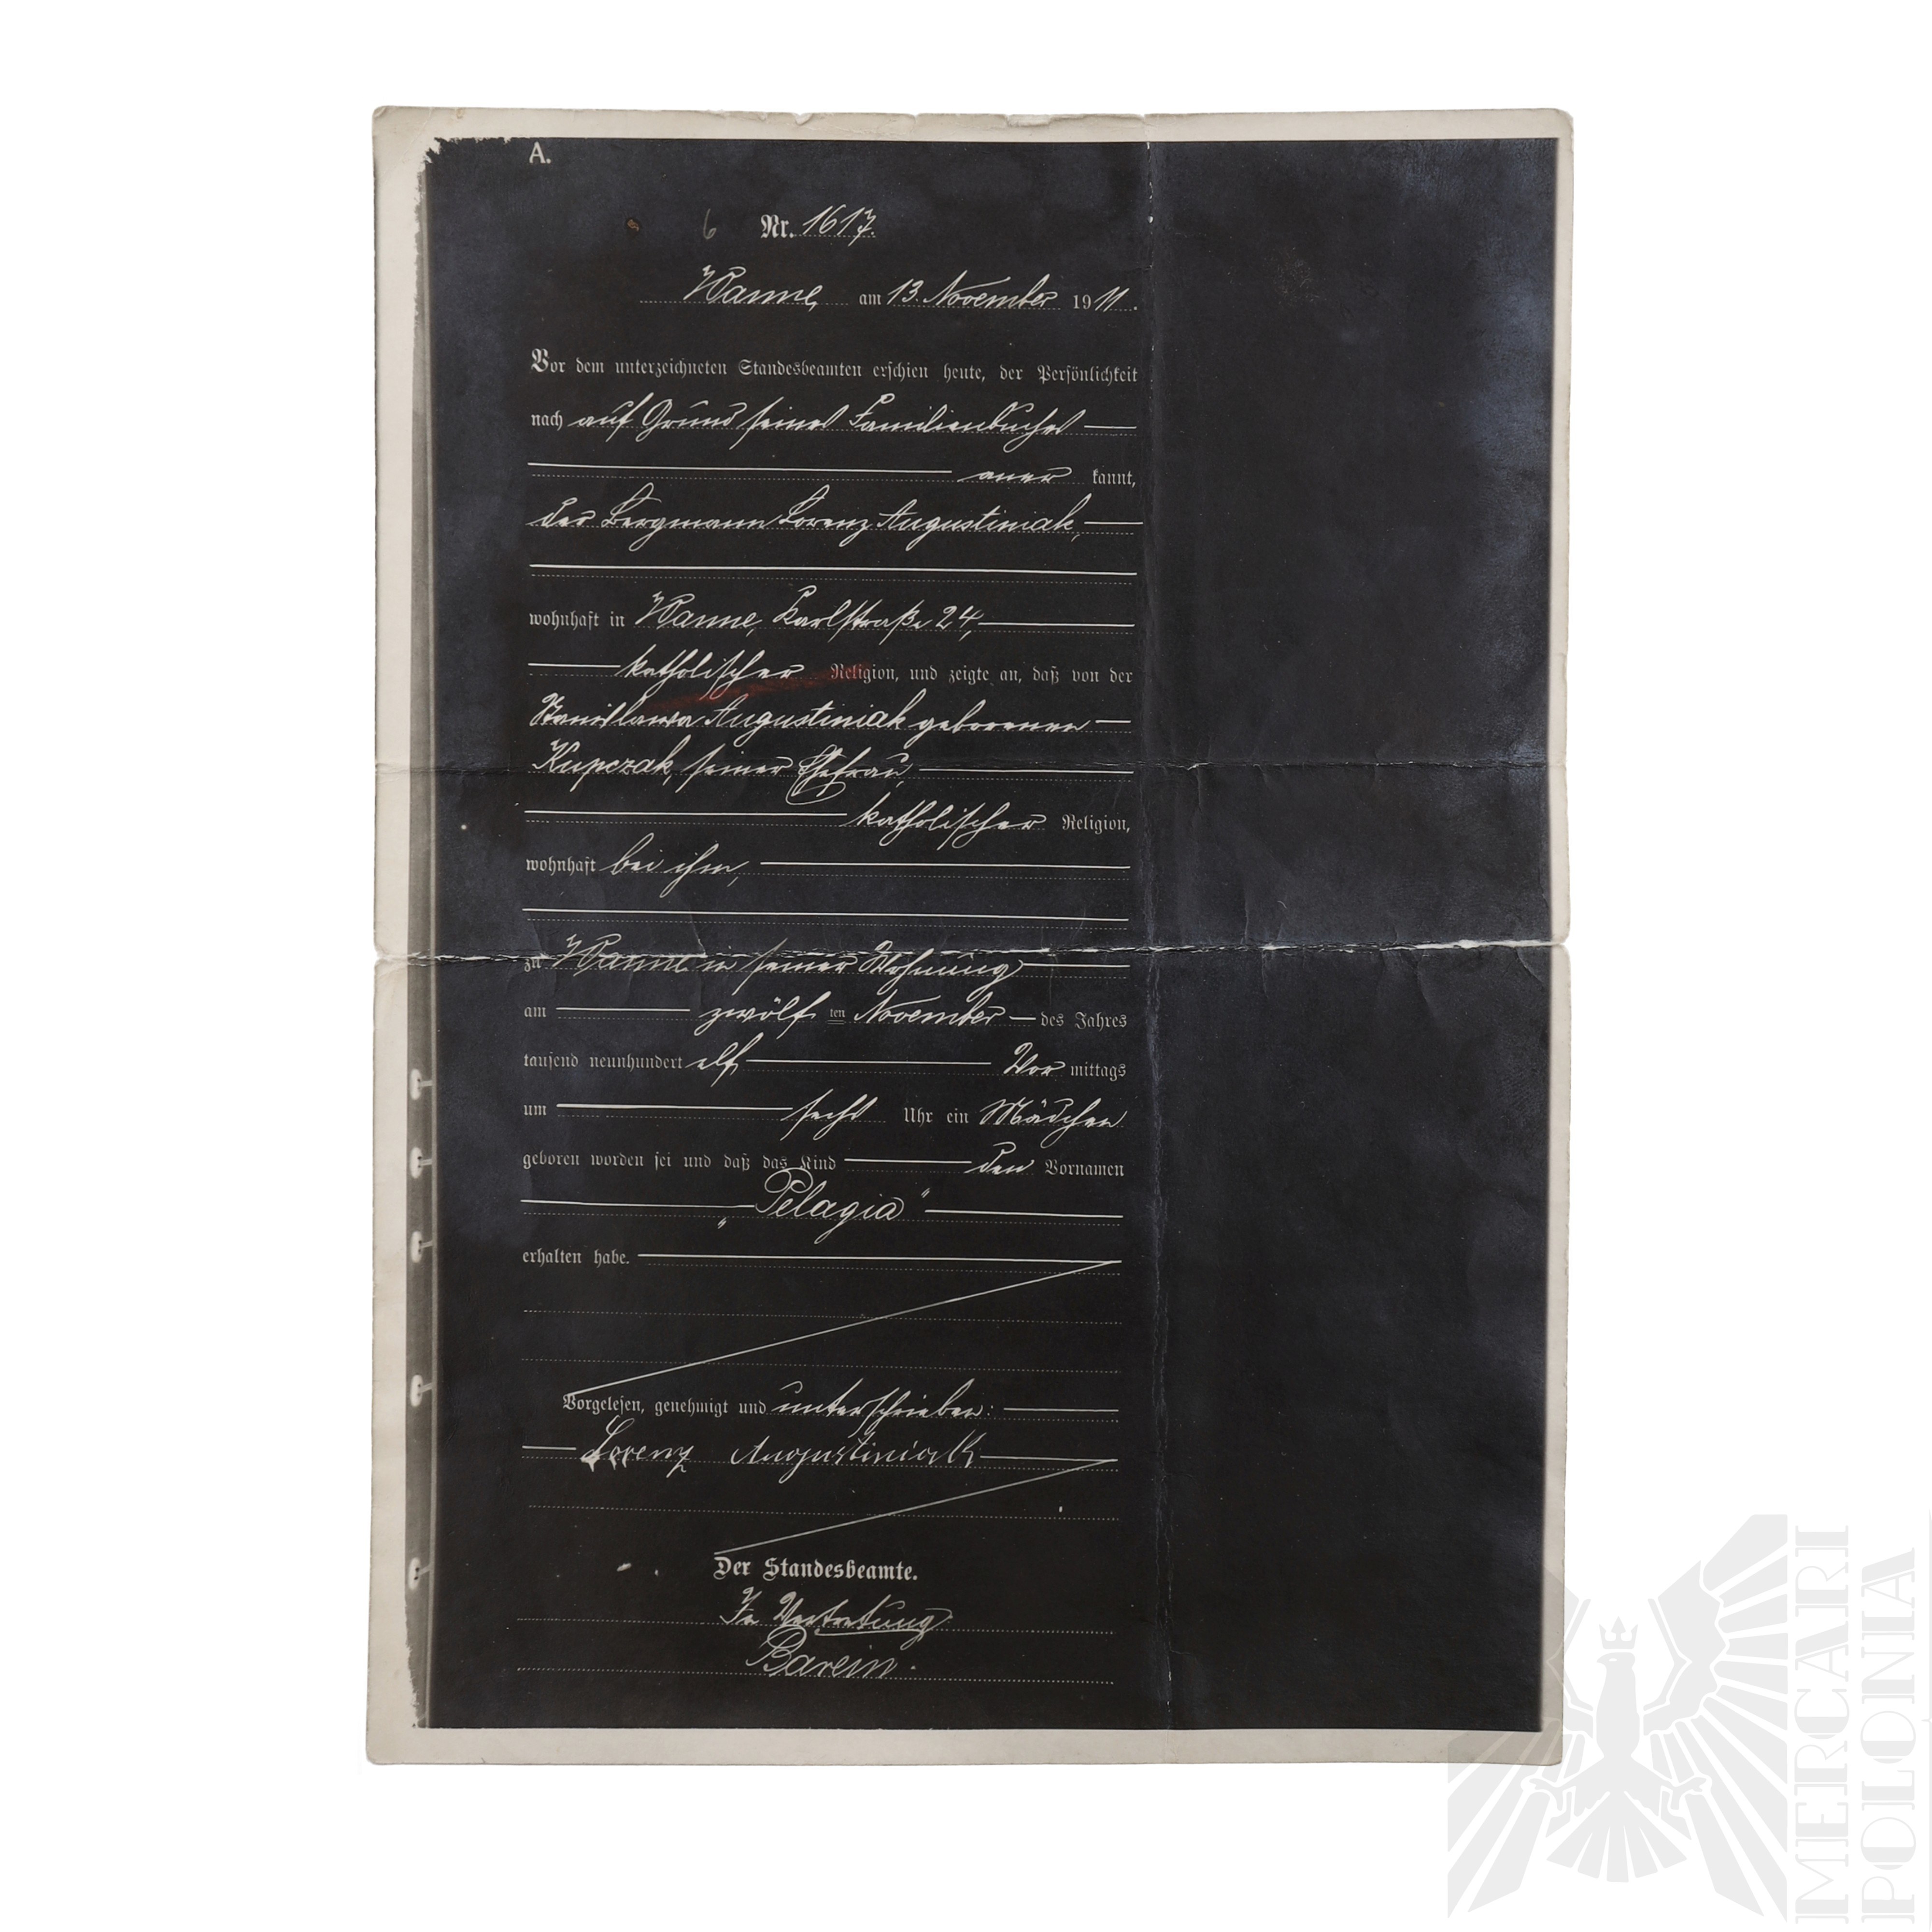 A.
6 Nr. 1617.
Wanne, am 13. November 1911.
Vor dem unterzeichneten Standesbeamten erschien heute, der Persönlichkeit
nach auf Grund seines Familienbuches
aner kannt,
der Bergmann Lorenz Augustiniak,
wohnhaft in Wanne, Karlstraße 24,
katholischer Religion, und zeigte an, daß von der
Stanislawa Augustiniak geborenen
Kupczak, seiner Ehefrau,
katholischer Religion,
wohnhaft bei ihm,
zu Wanne in seiner Wohnung
am zwölf ten November des Jahres
tausend neunhundert elf Vor mittags
um sechs Uhr ein Mädchen
geboren worden sei und daß das Kind den Vornamen
„Pelagia"
erhalten habe.
Vorgelesen, genehmigt und unterschrieben:
Lorenz Augustiniak
Der Standesbeamte.
In Vertretung
MERCARI
POLONIA